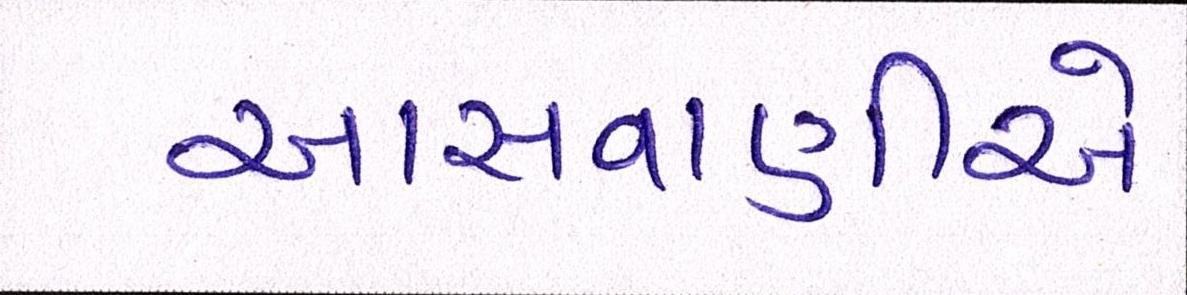 આસવાણીએ